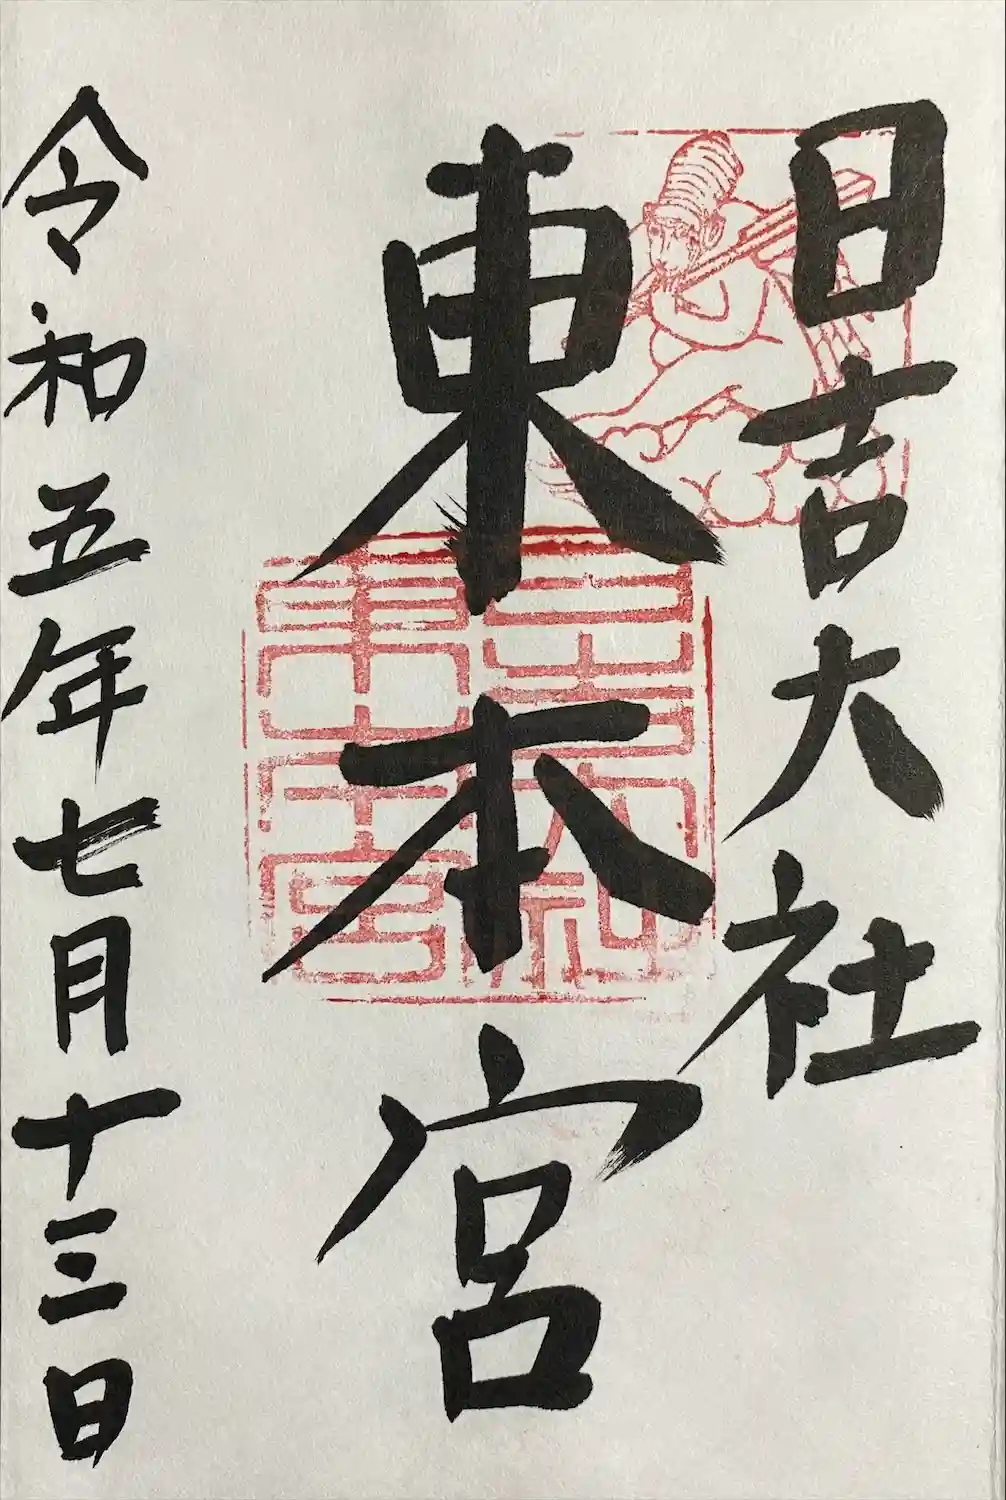 日吉大社
東本宮
令和五年七月十三日
日吉大社
東本宮